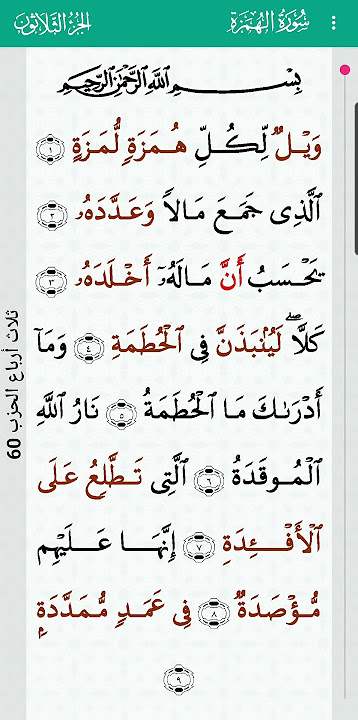 سُورَةُ الهُمَزَة
الجُزءُ الثَّلَاثُونَ
بِسْمِ اللَّهِ الرَّحْمَٰنِ الرَّحِيمِ
وَيْلٌ لِّكُلِّ هُمَزَةٍ لُّمَزَةٍ ١
ٱلَّذِى جَمَعَ مَالًا وَعَدَّدَهُۥ ٢
يَحْسَبُ أَنَّ مَالَهُۥٓ أَخْلَدَهُۥ ٣
كَلَّاۖ لَيُنۢبَذَنَّ فِى ٱلْحُطَمَةِ ٤ وَمَآ
أَدْرَىٰكَ مَا ٱلْحُطَمَةُ ٥ نَارُ ٱللَّهِ
ٱلْمُوقَدَةُ ٦ ٱلَّتِى تَطَّلِعُ عَلَى
ٱلْأَفْـِٔدَةِ ٧ إِنَّهَا عَلَيْهِم
مُّؤْصَدَةٌ ٨ فِى عَمَدٍ مُّمَدَّدَةٍۭ
٩
ثلاث أرباع الحزب 60